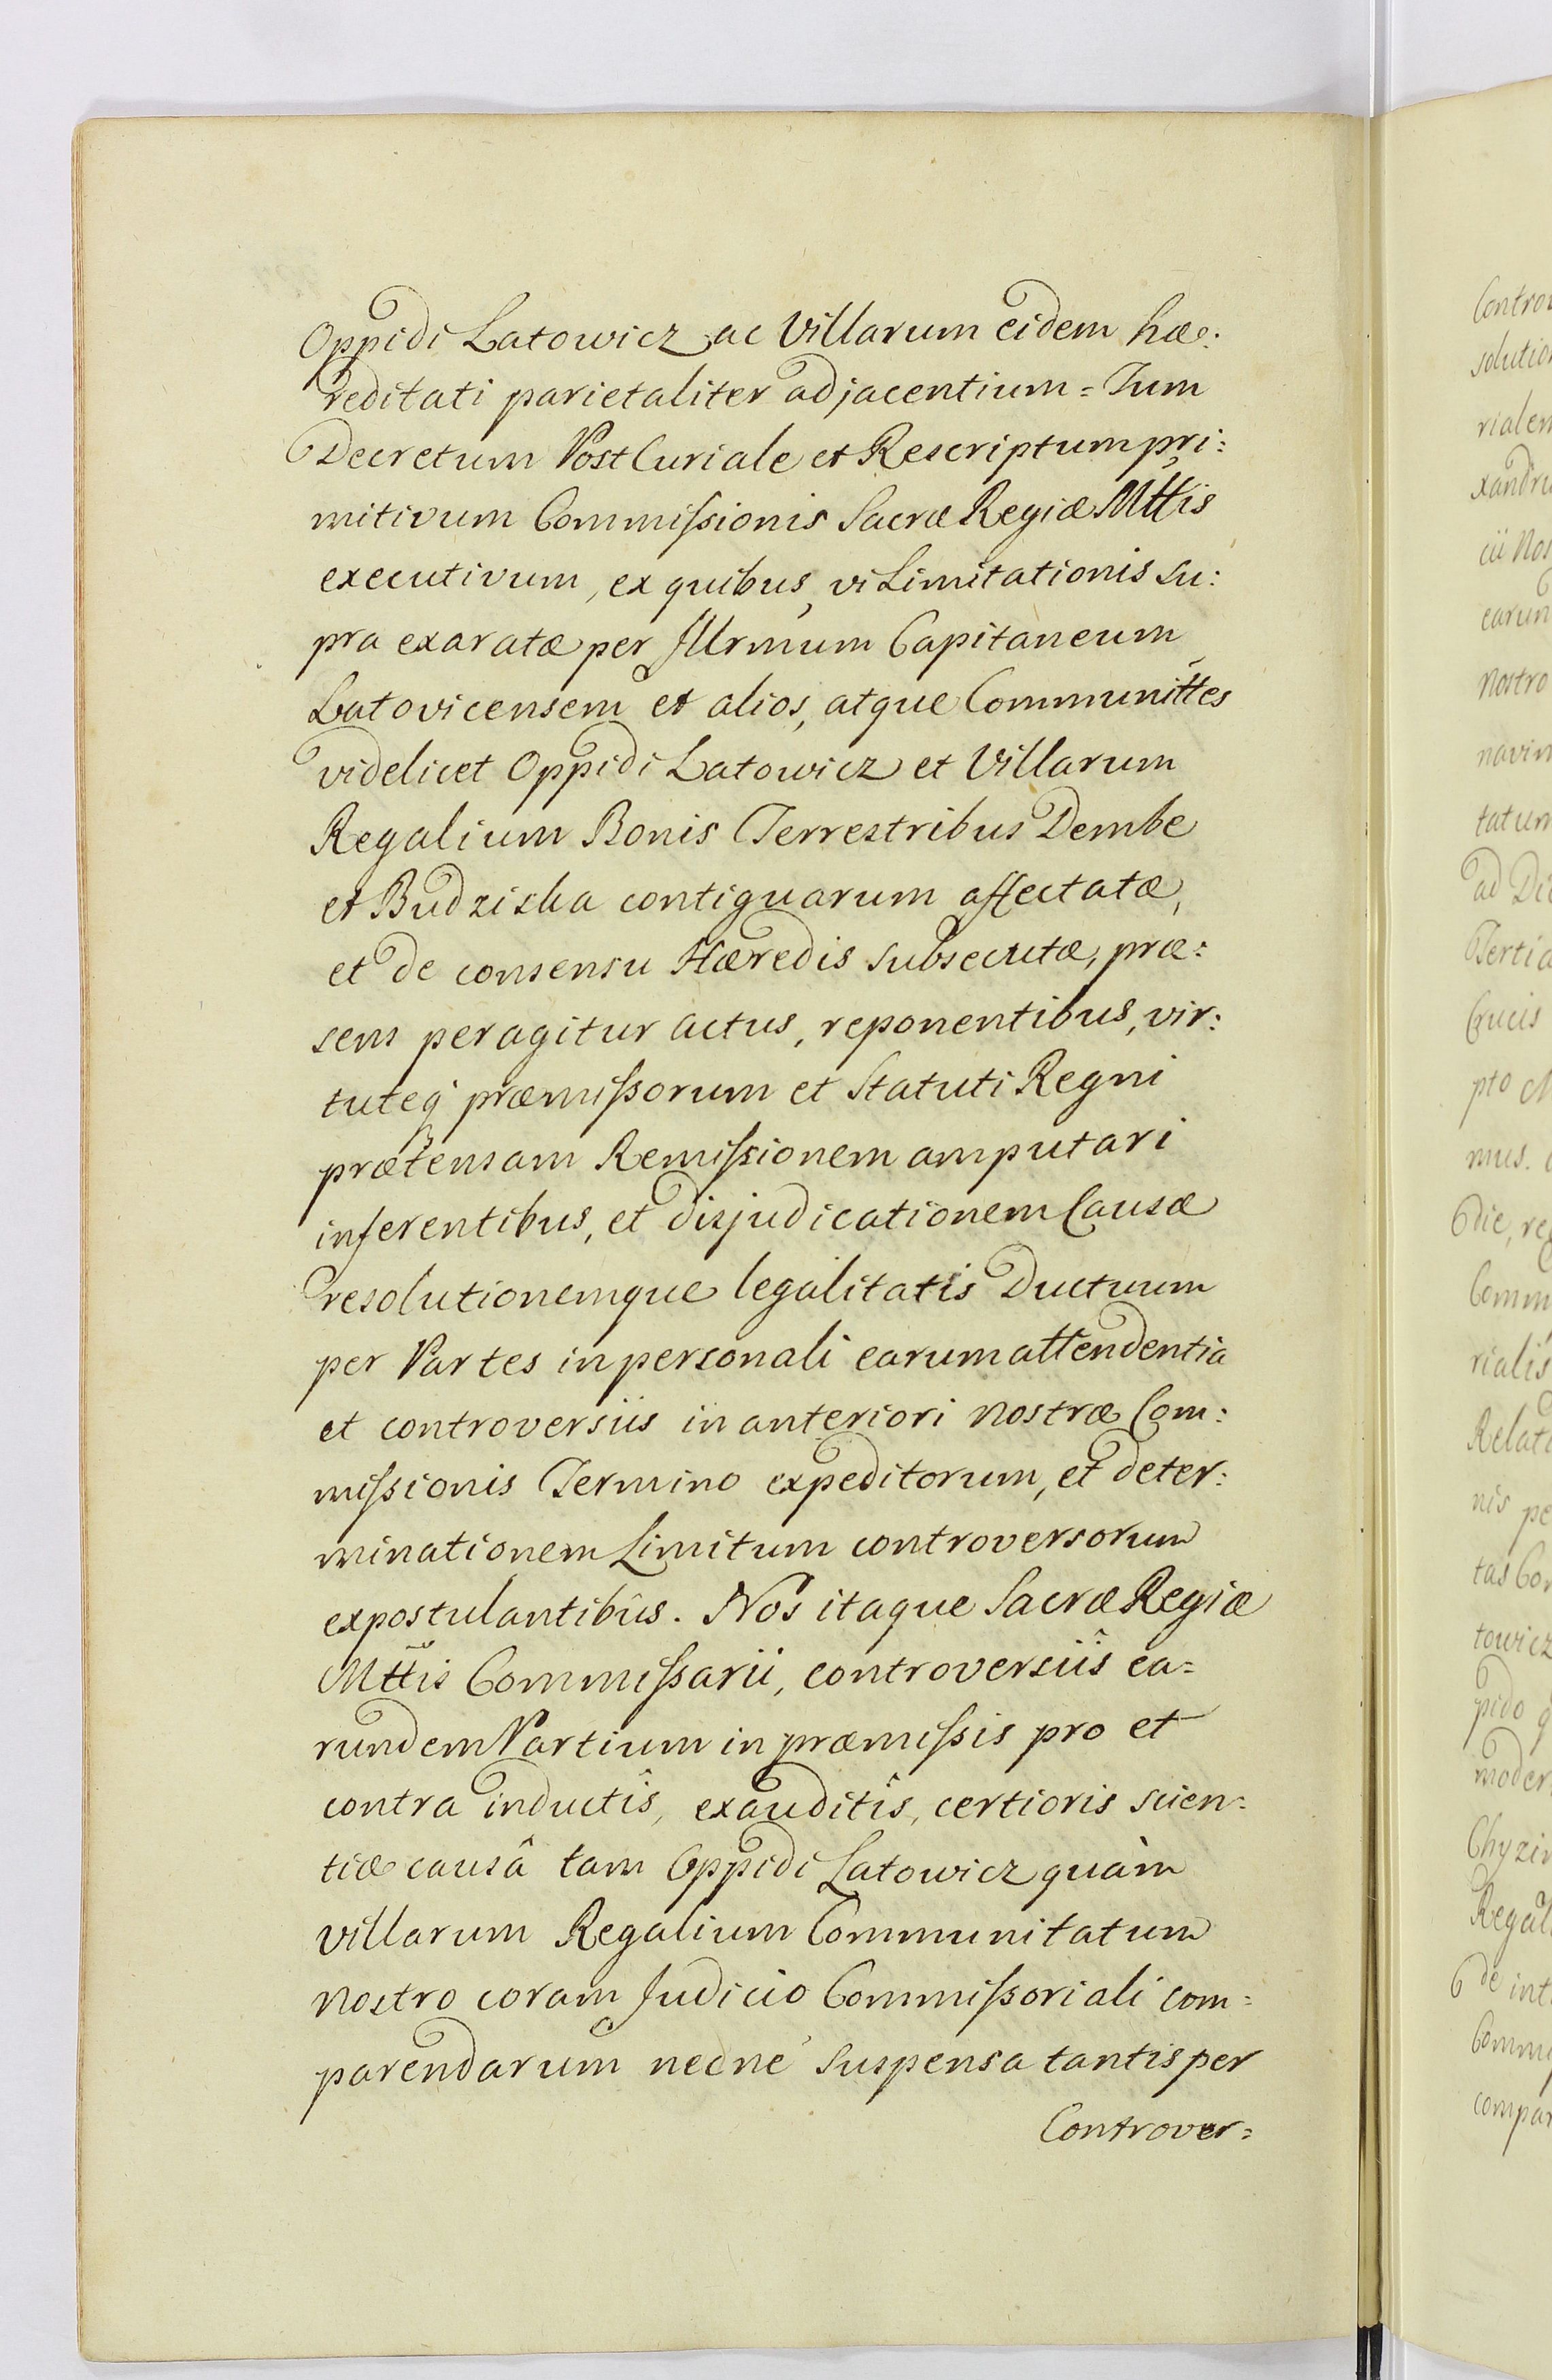 Oppidi Latowicz ac Villarum eidem hæ:
reditati parietaliter adjacentium = Tum
Decretum PostCuriale et Rescriptum pri:
mitivum Commissionis Sacræ Regiæ Mttis
executivum, ex quibus, vi Limitationis su:
pra exaratæ per Jllrmum Capitaneum
Latovicensem et alios, atque Communittes
videlicet Oppidi Latowicz et Villarum
Regalium Bonis Terrestribus Dembe
et Budziska contiguarum affectatæ,
et de consensu Hæredis subsecutæ, præ:
sens peragitur actus, reponentibus, vir:
tuteq præmissorum et Statuti Regni
prætensam Remissionem amputari
inferentibus, et disjudicationem Causæ
resolutionemque legalitatis Ductuum
per Partes in personali earum attendentia
et controversiis in anteriori nostræ Com:
missionis Termino expeditorum, et deter:
minationem Limitum controversorum
expostulantibûs. Nos itaque Sacræ Regiæ
Mttis Commissarii, controversiîs ea=
rundem Partium in præmissis pro et
contra inductîs, exauditîs, certioris scien=
tiæ causâ tam Oppidi Latowicz quàm
villarum Regalium Communitatum
nostro coram Judicio Commissoriali com=
parendarum necne suspensa tantisper
Controver=
Contro
solutio
rialem
xandru
cii Nos
earun
nostro
navim
tatum
ad Di
Tertia
Crucis
pto
mus.
die, re
Comm
rialis
Relat
nis pe
tas Co
towicz
pido q
moder
Chyzin
Regal
de int
Commi
compar